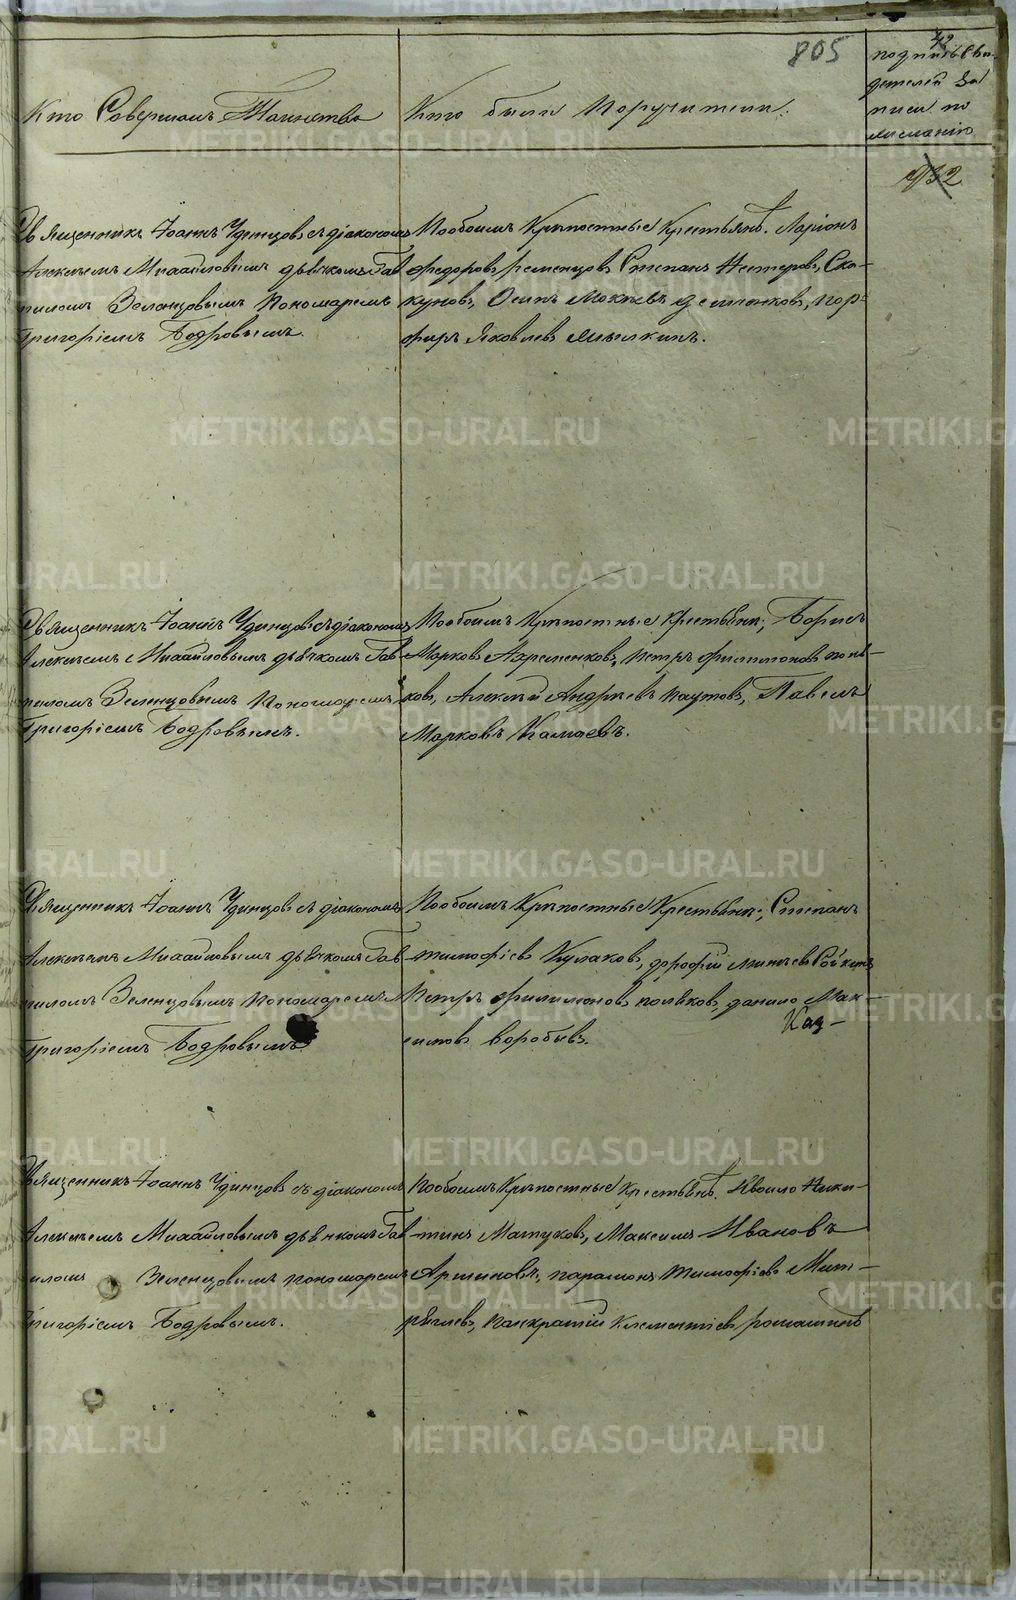 805
42
Кто Совершалъ Таинство
Кто были Поручители:
подпись Сви-
детелей За
писи по
желанію
932
Священникъ Іоаннъ Удинцовъ съ діакономъ
Алексѣемъ Михайловымъ дьячкомъ Гав
риломъ Зеленцовымъ Пономаремъ
Григоріемъ Бодровымъ.
Пообоимъ Крѣпостные Крестьянѣ. Ларіонъ
федоровъ Степанъ Нестеровъ, Ска-
куновъ, Осипъ Мокѣевъ демленковъ, Пор-
фиръ Яковлевъ Мылкинъ.
Священникъ Іоаннъ Удинцовъ съ діакономъ
Алексѣемъ Михайловымъ дьячкомъ Гав-
риломъ Зеленцовымъ Пономаремъ
Григоріемъ Бодровымъ.
Пообоимъ Крѣпостные Крестьяни; Борисъ
Марковъ Ахременковъ, Петръ филимоновъ поля-
ковъ, Алексѣй Андреевъ Паутовъ, Павелъ
Марковъ Камаевъ.
Священникъ Іоаннъ Удинцовъ съ діакономъ
Алексѣемъ Михайловымъ дьячкомъ Гав
риломъ Зеленцовымъ Пономаремъ
Григоріемъ Бодровымъ
Пообоимъ Крѣпостные Крестьяни; Степанъ
тимофіевъ Кулаковъ, дорофій
Петръ филимоновъ поляковъ, данило Мак-
симовъ воробьевъ.
Каз-
Священникъ Іоаннъ Удинцовъ съ діакономъ
Алексѣемъ Михайловымъ дьячкомъ Гав
риломъ Зеленцовымъ пономаремъ
Григоріемъ Бодровымъ.
Пообоимъ Крѣпостные Крестьянѣ. Ники-
тинъ Матуковъ, Максимъ Ивановъ
парамонъ Тимофіевъ Мит-
панкратій Клементіевъ ромашинъ
METRIKI.GASO-URAL.RU